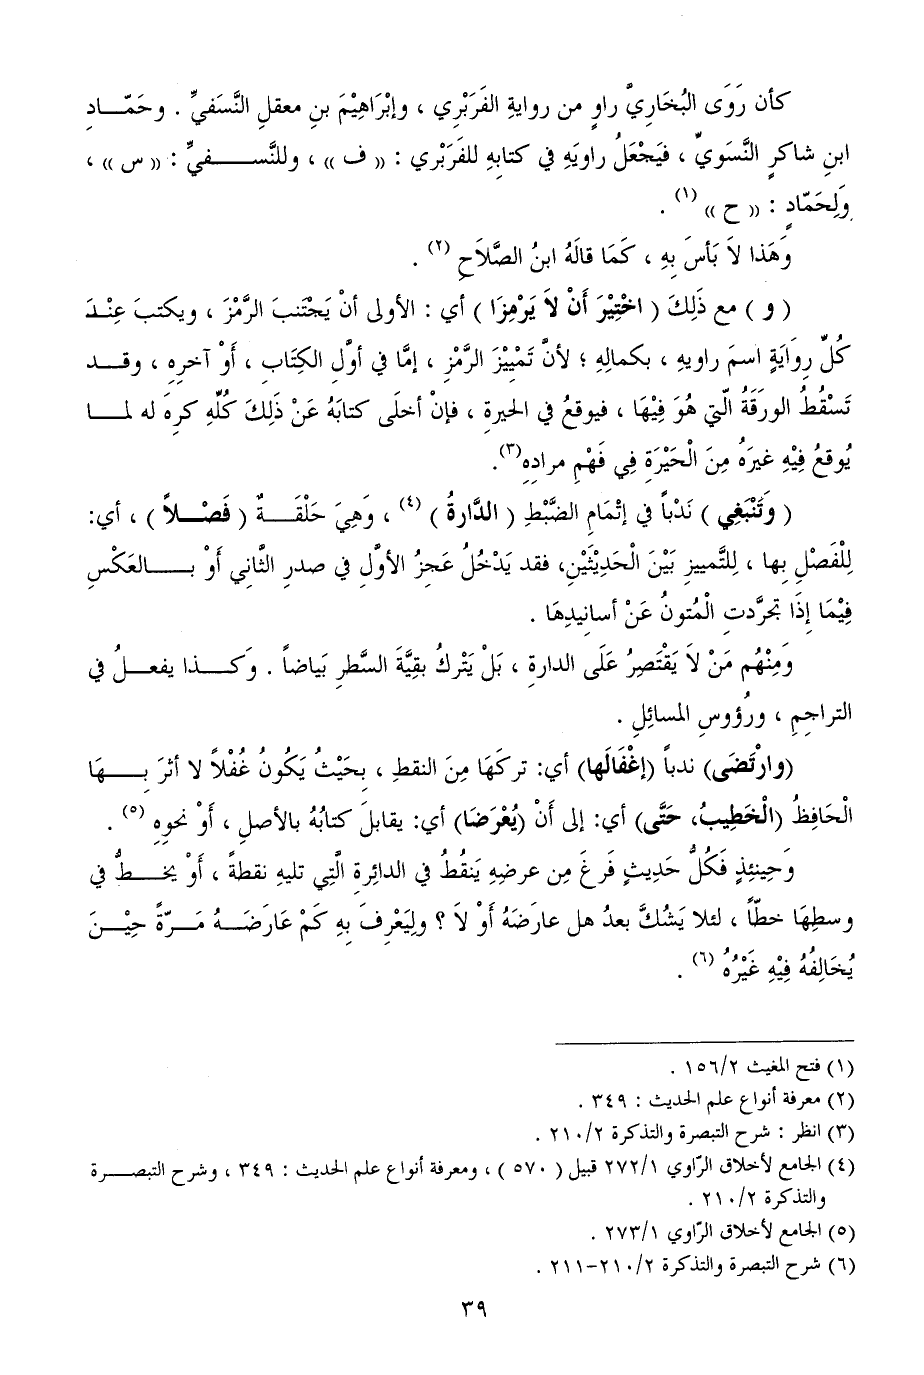 كأن رَوَى البُخَاريَّ راوٍ من روايةِ الفَرَبْرِي ، وإبْرَاهِيْمَ بنِ معقلٍ النَّسَفيِّ . وحَمَّــادِ
ابنِ شاكرٍ النَّسَويِّ ، فيَجْعَلُ راويَهِ في كتابِهِ للفَرَبْري : « ف » ، وللنَّســـفيِّ : « س » ،
ولِحَمّادٍ : « ح » (١) .
وَهَذا لاَ بَأسَ بِهِ ، كَمَا قالَهُ ابنُ الصَّلاَحِ (٢) .
( و ) مع ذَلِكَ ( اخْتِيْرَ أَنْ لاَ يَرْمِزَا ) أي : الأولى أنْ يَجْتَنبَ الرَّمْزَ ، ويكتبَ عِنْــدَ
كُلِّ رِوَايَةٍ اسمَ راويهِ ، بكمالِهِ ؛ لأنَّ تَمْيِيْزَ الرَّمْزِ ، إمَّا في أوَّلِ الكِتَابِ ، أَوْ آخرِهِ ، وقـــد
تَسْقُطُ الورَقَةُ الّتي هُوَ فِيْهَا ، فيوقعُ في الحيرةِ ، فإنْ أخلَى كتابَهُ عَنْ ذَلِكَ كُلِّهِ كرِهَ له لمـــا
يُوقعُ فِيْهِ غيرَهُ مِنَ الْحَيْرَةِ فِي فَهْمِ مرادِهِ(٣).
( وَتَنْبَغِي ) نَدْباً في إتْمَامِ الضَّبْطِ ( الدَّارةُ ) (٤) ، وَهِيَ حَلْقَـــةٌ ( فَصْـــلاً ) ، أي:
لِلْفَصْلِ بِها ، لِلتَّمييزِ بَيْنَ الْحَدِيْثَيْنِ، فقد يَدْخُلُ عَجزُ الأوَّلِ في صدرِ الثَّاني أَوْ بـــــالعَكْسِ
فِيْمَا إذَا تَجرَّدت الْمُتونُ عَنْ أسانيدِهَا .
وَمِنْهُم مَنْ لاَ يَقْتَصِرُ عَلَى الدارةِ ، بَلْ يَتْركُ بقيَّةَ السَّطرِ بَياضاً . وَكـــــذا يفعـــلُ في
التراجمِ ، ورُؤُوسِ المسائِلِ .
(وارْتَضَى) ندباً (إغْفَالَها) أي: تركَهَا مِنَ النقطِ ، بِحَيْثُ يَكُونُ غُفْلاً لا أثرَ بِـــــهَا
الْحَافِظُ (الْخَطِيبُ، حَتَّى) أي: إلى أَنْ (يُعْرَضَا) أي: يقابلَ كتابُهُ بالأصلِ ، أَوْ نحوِهِ (٥) .
وَحِينئِذٍ فَكُلُّ حَديثٍ فَرغَ مِن عرضِهِ يَنقُطُ في الدائِرةِ الَّتِي تليهِ نقطةً ، أَوْ يخـــطُّ في
وسطِهَا خطّاً ، لئلا يَشُكَّ بعدُ هل عارَضَهُ أَوْ لاَ ؟ وليَعْرِفَ بِهِ كَمْ عَارَضَــهُ مَــرّةً حِيْــنَ
يُخَالِفُهُ فِيْهِ غَيْرُهُ (٦) .
(١) فتح المغيث ١٥٦/٢ .
(٢) معرفة أنواع علم الحديث : ٣٤٩ .
(٣) انظر : شرح التبصرة والتذكرة ٢١٠/٢ .
(٤) الجامع لأخلاق الرّاوي ٢٧٢/١ قبيل ( ٥٧٠ ) ، ومعرفة أنواع علم الحديث : ٣٤٩ ، وشرح التبصـــرة
والتذكرة ٢١٠/٢ .
(٥) الجامع لأخلاق الرّاوي ٢٧٣/١ .
(٦) شرح التبصرة والتذكرة ٢١٠/٢-٢١١ .
٣٩